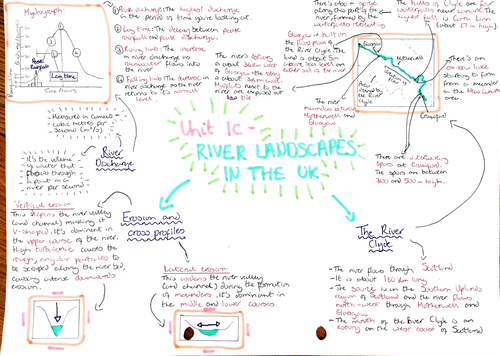 Hydrograph:
River Discharge
Peak Rainfall
Lag time
Time/Hours
① Peak discharge: The highest discharge
in the period of time you're looking at.
② Lag time: The delay between peak
rainfall and peak discharge
③ Rising limb: The increase
in river discharge as
rainwater flows into
the river
④ Falling limb: The decrease in
river discharge as the river
returns to it's normal
level
There's also a gorge
along this part of the
river formed by the
waterfalls retreating
The Falls of Clyde are four
waterfalls near Lanark. The
highest fall is Corra Linn
(about 27 m high)
Glasgow is built on
the flood plain of
the River Clyde. The
land is about 5m
above sea level on
either side of the river
Glasgow
Motherwell
Crawford
Area
drained
by the River
Clyde
The river
meanders between
Motherwell and
Glasgow
There's an
ox-bow lake
starting to
form from
a meander
in the
area
There are interlocking
spurs at Crawford.
The spurs are between
300 and 500m high.
- Measured in cumecs
- cubic metres per
second (m³/s)
River
Discharge
It's the volume
of water that
flows through
a point in a
river per second
Unit 1c -
RIVER LANDSCAPES
IN THE UK
Vertical erosion:
This deepens the river valley
(and channel) making it
V-shaped. It's dominant in
the upper course of the river.
High turbulence causes the
rough, angular particles to
be scraped along the river bed,
causing intense downwards
erosion.
Erosion and
cross profiles
Lateral erosion:
This widens the river valley
(and channel) during the formation
of meanders. It's dominant in the
middle and lower courses.
The River
Clyde
- The river flows through Scotland
- It is about 160 km long
- The source is in the Southern Uplands
region of Scotland and the river flows
north-west through Motherwell and
Glasgow
- The mouth of the River Clyde is an
estuary on the west coast of Scotland